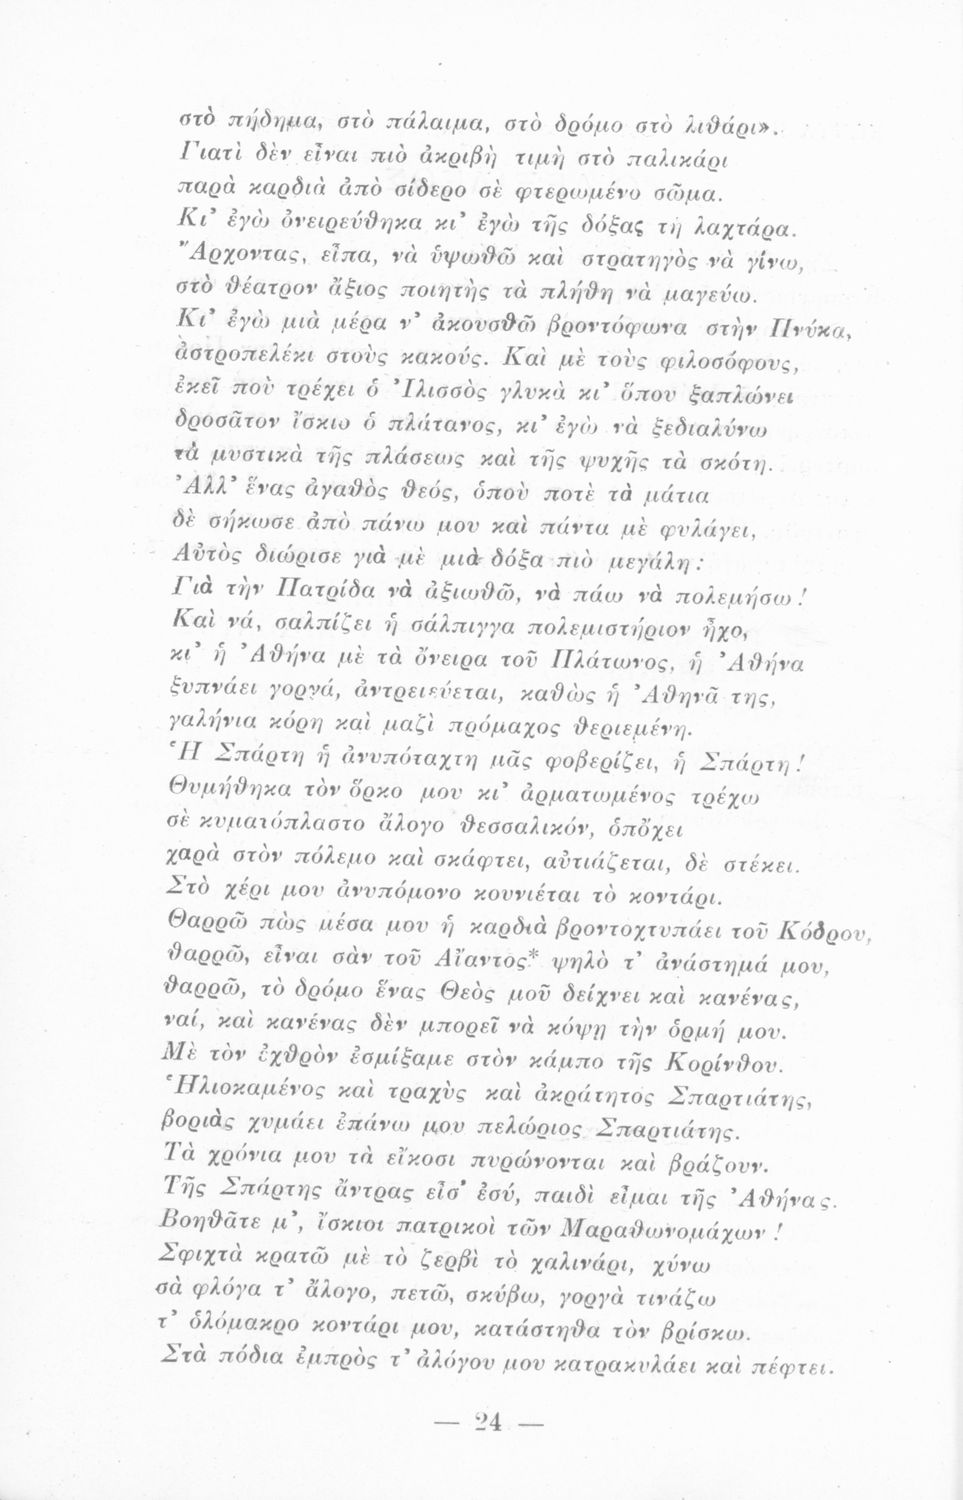 στὸ πήδημα, στὸ πάλαιμα, στὸ δρόμο στὸ λιθάρι».
Γιατὶ δὲν εἶναι πιὸ ἀκριβὴ τιμὴ στὸ παλικάρι
παρὰ καρδιὰ ἀπὸ σίδερο σὲ φτερωμένο σῶμα.
Κι’ ἐγὼ ὀνειρεύθηκα κι’ ἐγὼ τῆς δόξας τὴ λαχτάρα.
Ἄρχοντας, εἶπα, νὰ ὑψωθῶ καὶ στρατηγὸς νὰ γίνω,
στὸ θέατρον ἄξιος ποιητὴς τὰ πλήθη νὰ μαγεύω.
Κι’ ἐγὼ μιὰ μέρα ν’ ἀκουσθῶ βροντόφωνα στὴν Πνύκα,
ἀστροπελέκι στοὺς κακούς. Καὶ μὲ τοὺς φιλοσόφους,
ἐκεῖ ποὺ τρέχει ὁ Ἰλισσὸς γλυκὰ κι’ ὅπου ξαπλώνει
δροσᾶτον ἴσκιο ὁ πλάτανος, κι’ ἐγὼ νὰ ξεδιαλύνω
τὰ μυστικὰ τῆς πλάσεως καὶ τῆς ψυχῆς τὰ σκότη.
Ἀλλ’ ἕνας ἀγαθὸς θεός, ὁποὺ ποτὲ τὰ μάτια
δὲ σήκωσε ἀπὸ πάνω μου καὶ πάντα μὲ φυλάγει,
Αὐτὸς διώρισε γιὰ μὲ μιὰ δόξα πιὸ μεγάλη:
Γιὰ τὴν Πατρίδα νὰ ἀξιωθῶ, νὰ πάω νὰ πολεμήσω!
Καὶ νά, σαλπίζει ἡ σάλπιγγα πολεμιστήριον ἦχο,
κι’ ἡ Ἀθήνα μὲ τὰ ὄνειρα τοῦ Πλάτωνος, ἡ Ἀθήνα
ξυπνάει γοργά, ἀντρειεύεται, καθὼς ἡ Ἀθηνᾶ της,
γαλήνια κόρη καὶ μαζὶ πρόμαχος θεριεμένη.
Ἡ Σπάρτη ἡ ἀνυπόταχτη μᾶς φοβερίζει, ἡ Σπάρτη!
Θυμήθηκα τὸν ὅρκο μου κι’ ἁρματωμένος τρέχω
σὲ κυματόπλαστο ἄλογο θεσσαλικόν, ὁπὄχει
χαρὰ στὸν πόλεμο καὶ σκάφτει, αὐτιάζεται, δὲ στέκει.
Στὸ χέρι μου ἀνυπόμονο κουνιέται τὸ κοντάρι.
Θαρρῶ πὼς μέσα μου ἡ καρδιὰ βροντοχτυπάει τοῦ Κόδρου,
θαρρῶ, εἶναι σὰν τοῦ Αἴαντος* ψηλὸ τ’ ἀνάστημά μου,
θαρρῶ, τὸ δρόμο ἕνας Θεὸς μοῦ δείχνει καὶ κανένας,
ναί, καὶ κανένας δὲν μπορεῖ νὰ κόψῃ τὴν ὁρμή μου.
Μὲ τὸν ἐχθρὸν ἐσμίξαμε στὸν κάμπο τῆς Κορίνθου.
Ἡλιοκαμένος καὶ τραχὺς καὶ ἀκράτητος Σπαρτιάτης,
βοριὰς χυμάει ἐπάνω μου πελώριος Σπαρτιάτης.
Τὰ χρόνια μου τὰ εἴκοσι πυρώνονται καὶ βράζουν.
Τῆς Σπάρτης ἄντρας εἶσ’ ἐσύ, παιδὶ εἶμαι τῆς Ἀθήνας.
Βοηθᾶτε μ’, ἴσκιοι πατρικοὶ τῶν Μαραθωνομάχων!
Σφιχτὰ κρατῶ μὲ τὸ ζερβὶ τὸ χαλινάρι, χύνω
σὰ φλόγα τ’ ἄλογο, πετῶ, σκύβω, γοργὰ τινάζω
τ’ ὁλόμακρο κοντάρι μου, κατάστηθα τὸν βρίσκω.
Στὰ πόδια ἐμπρὸς τ’ ἀλόγου μου κατρακυλάει καὶ πέφτει.
— 24 —